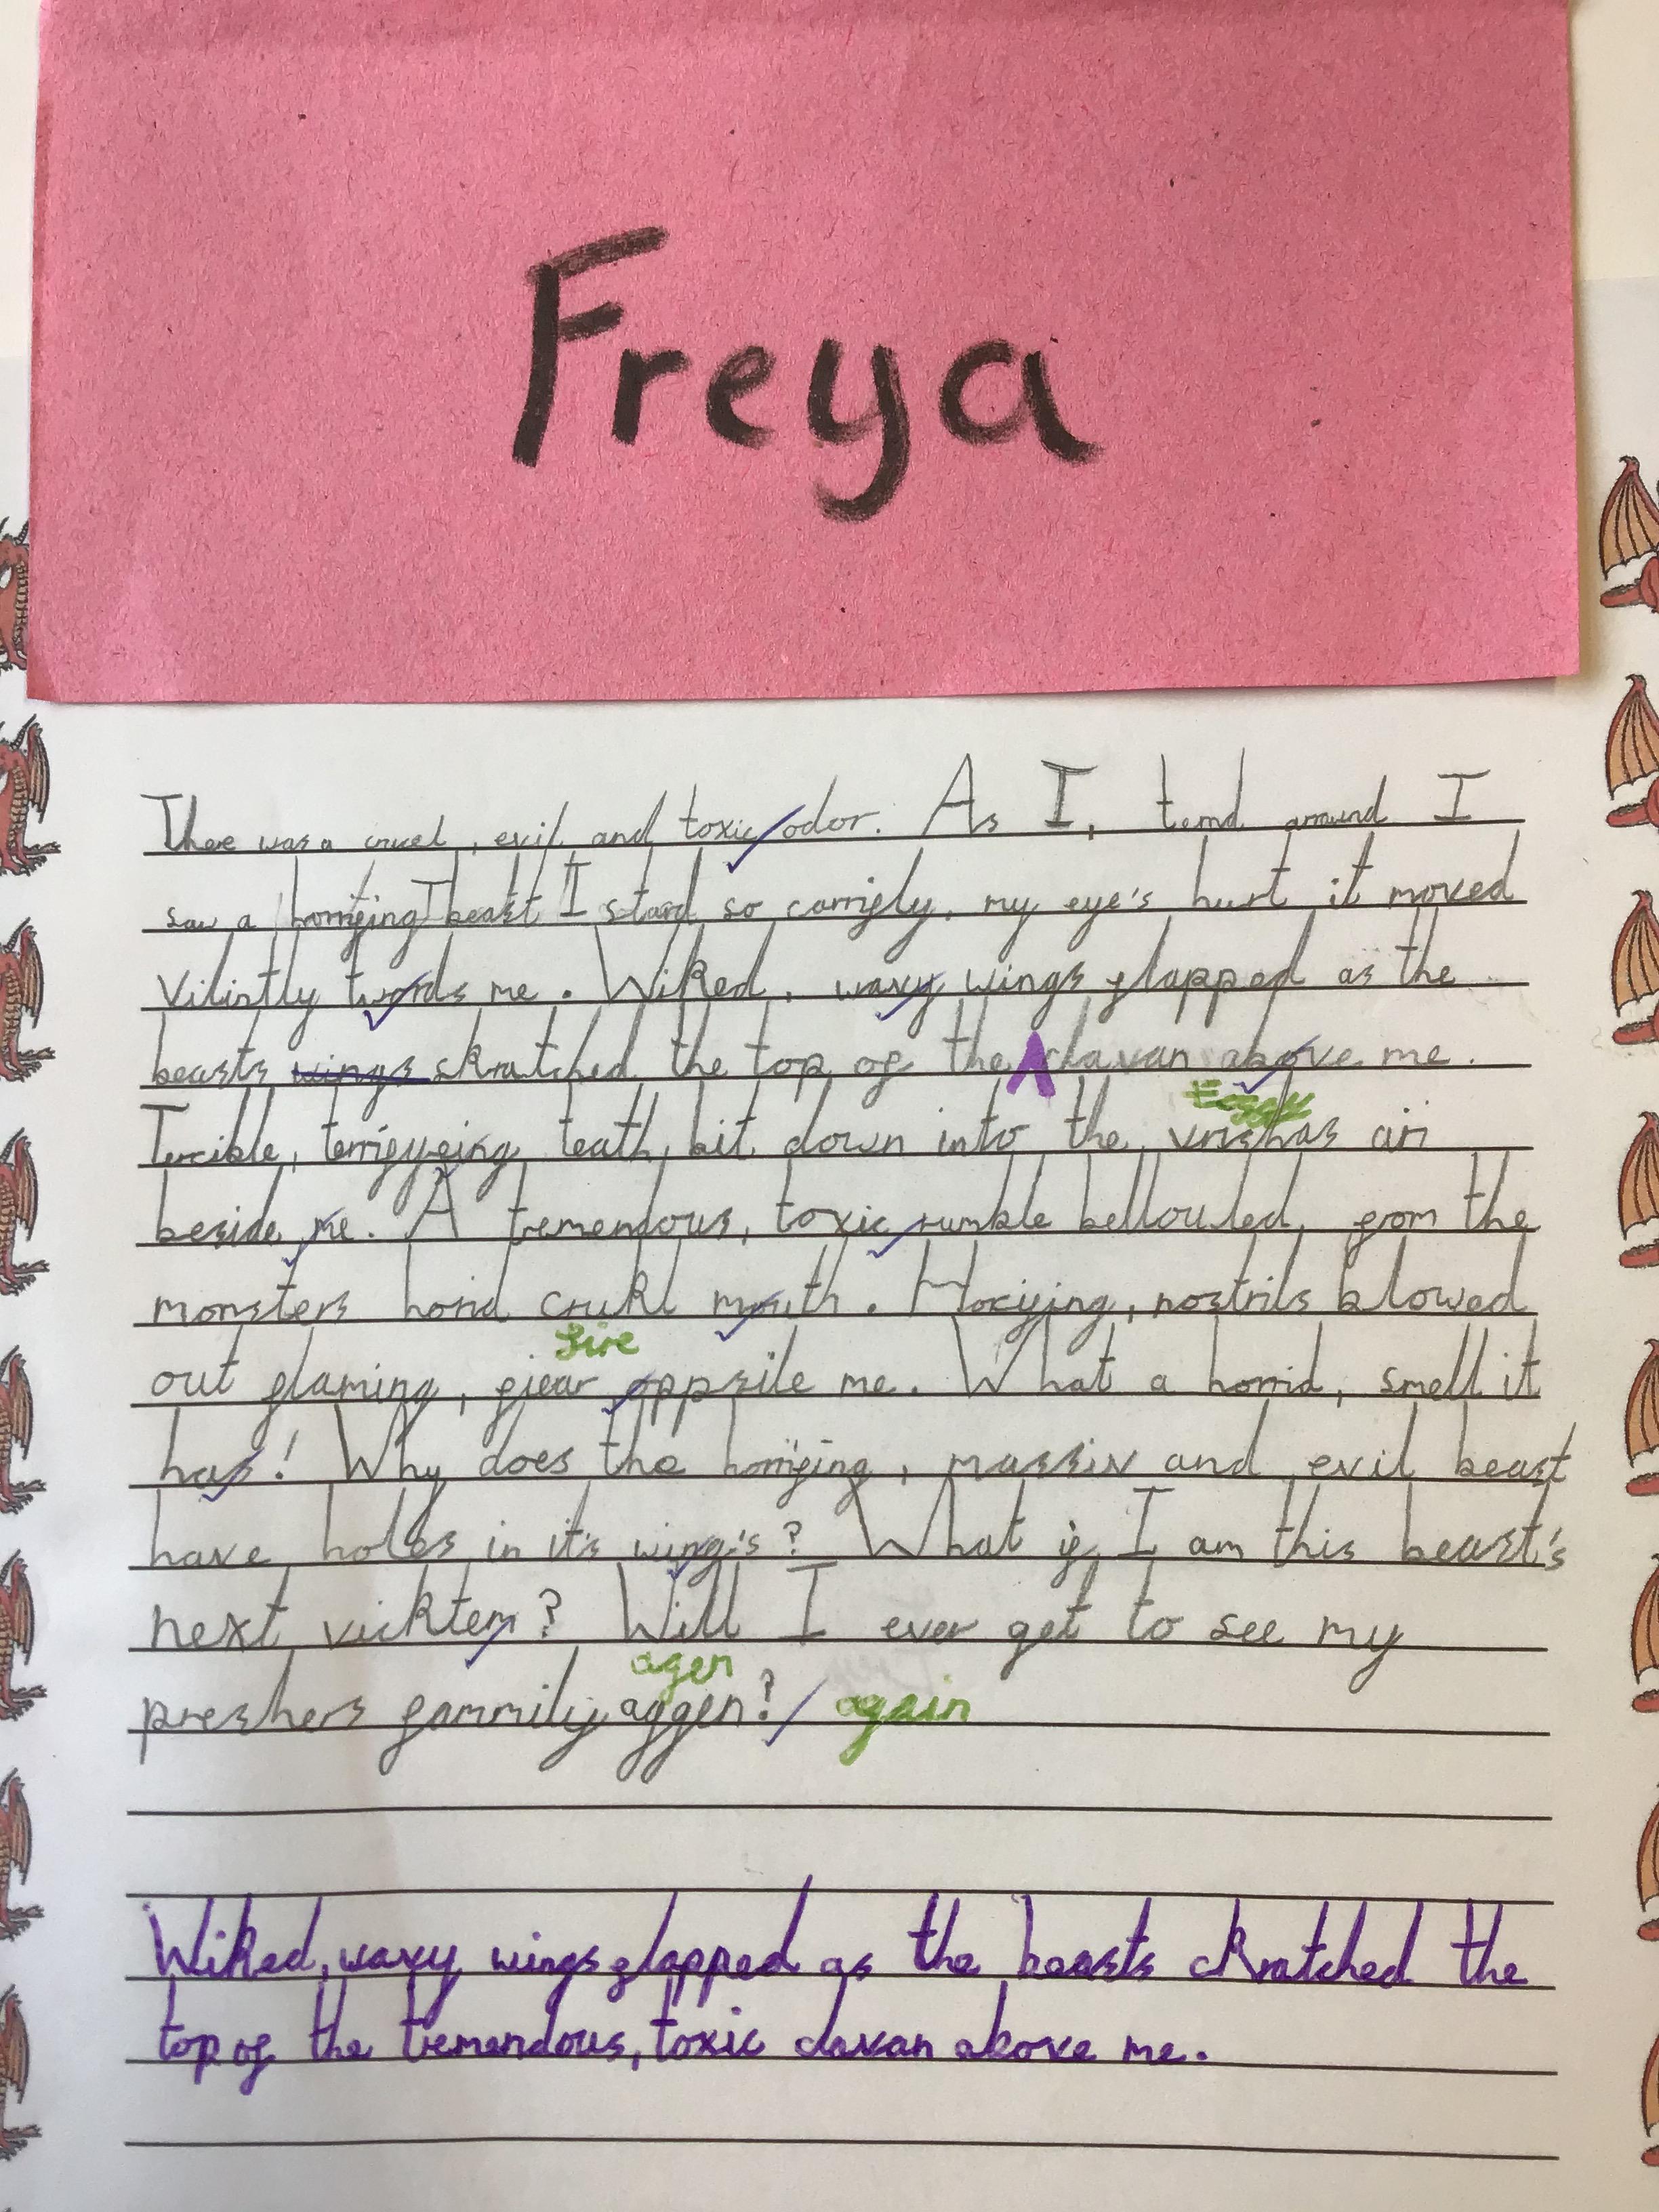 Freya
There was a cruel, evil and toxic odor. As I, turnd around I
saw a horrifing beast I stard so carrifly, my eye's hurt it moved
Vilintly twords me. Wiked, waxy wings flapped as the
beasts wings skratched the top of the clavan above me.
Foggy
Terrible, terrifyeing teath, bit down into the, vrishas air
beside me. A tremendous, toxic rumble bellouled, from the
monsters horid crukl mouth. Horifing, nostrils blowed
fire
out flaming, fiear oppsile me. What a horrid, smell it
has! Why does the horrifing, massiv and evil beast
have holes in it's wing's? What if, I am this beast's
next vicktem? Will I ever get to see my
agen
preshers fammily aggen? again
Wiked, waxy wings flapped as the beasts skratched the
top of the tremendous, toxic clavan above me.